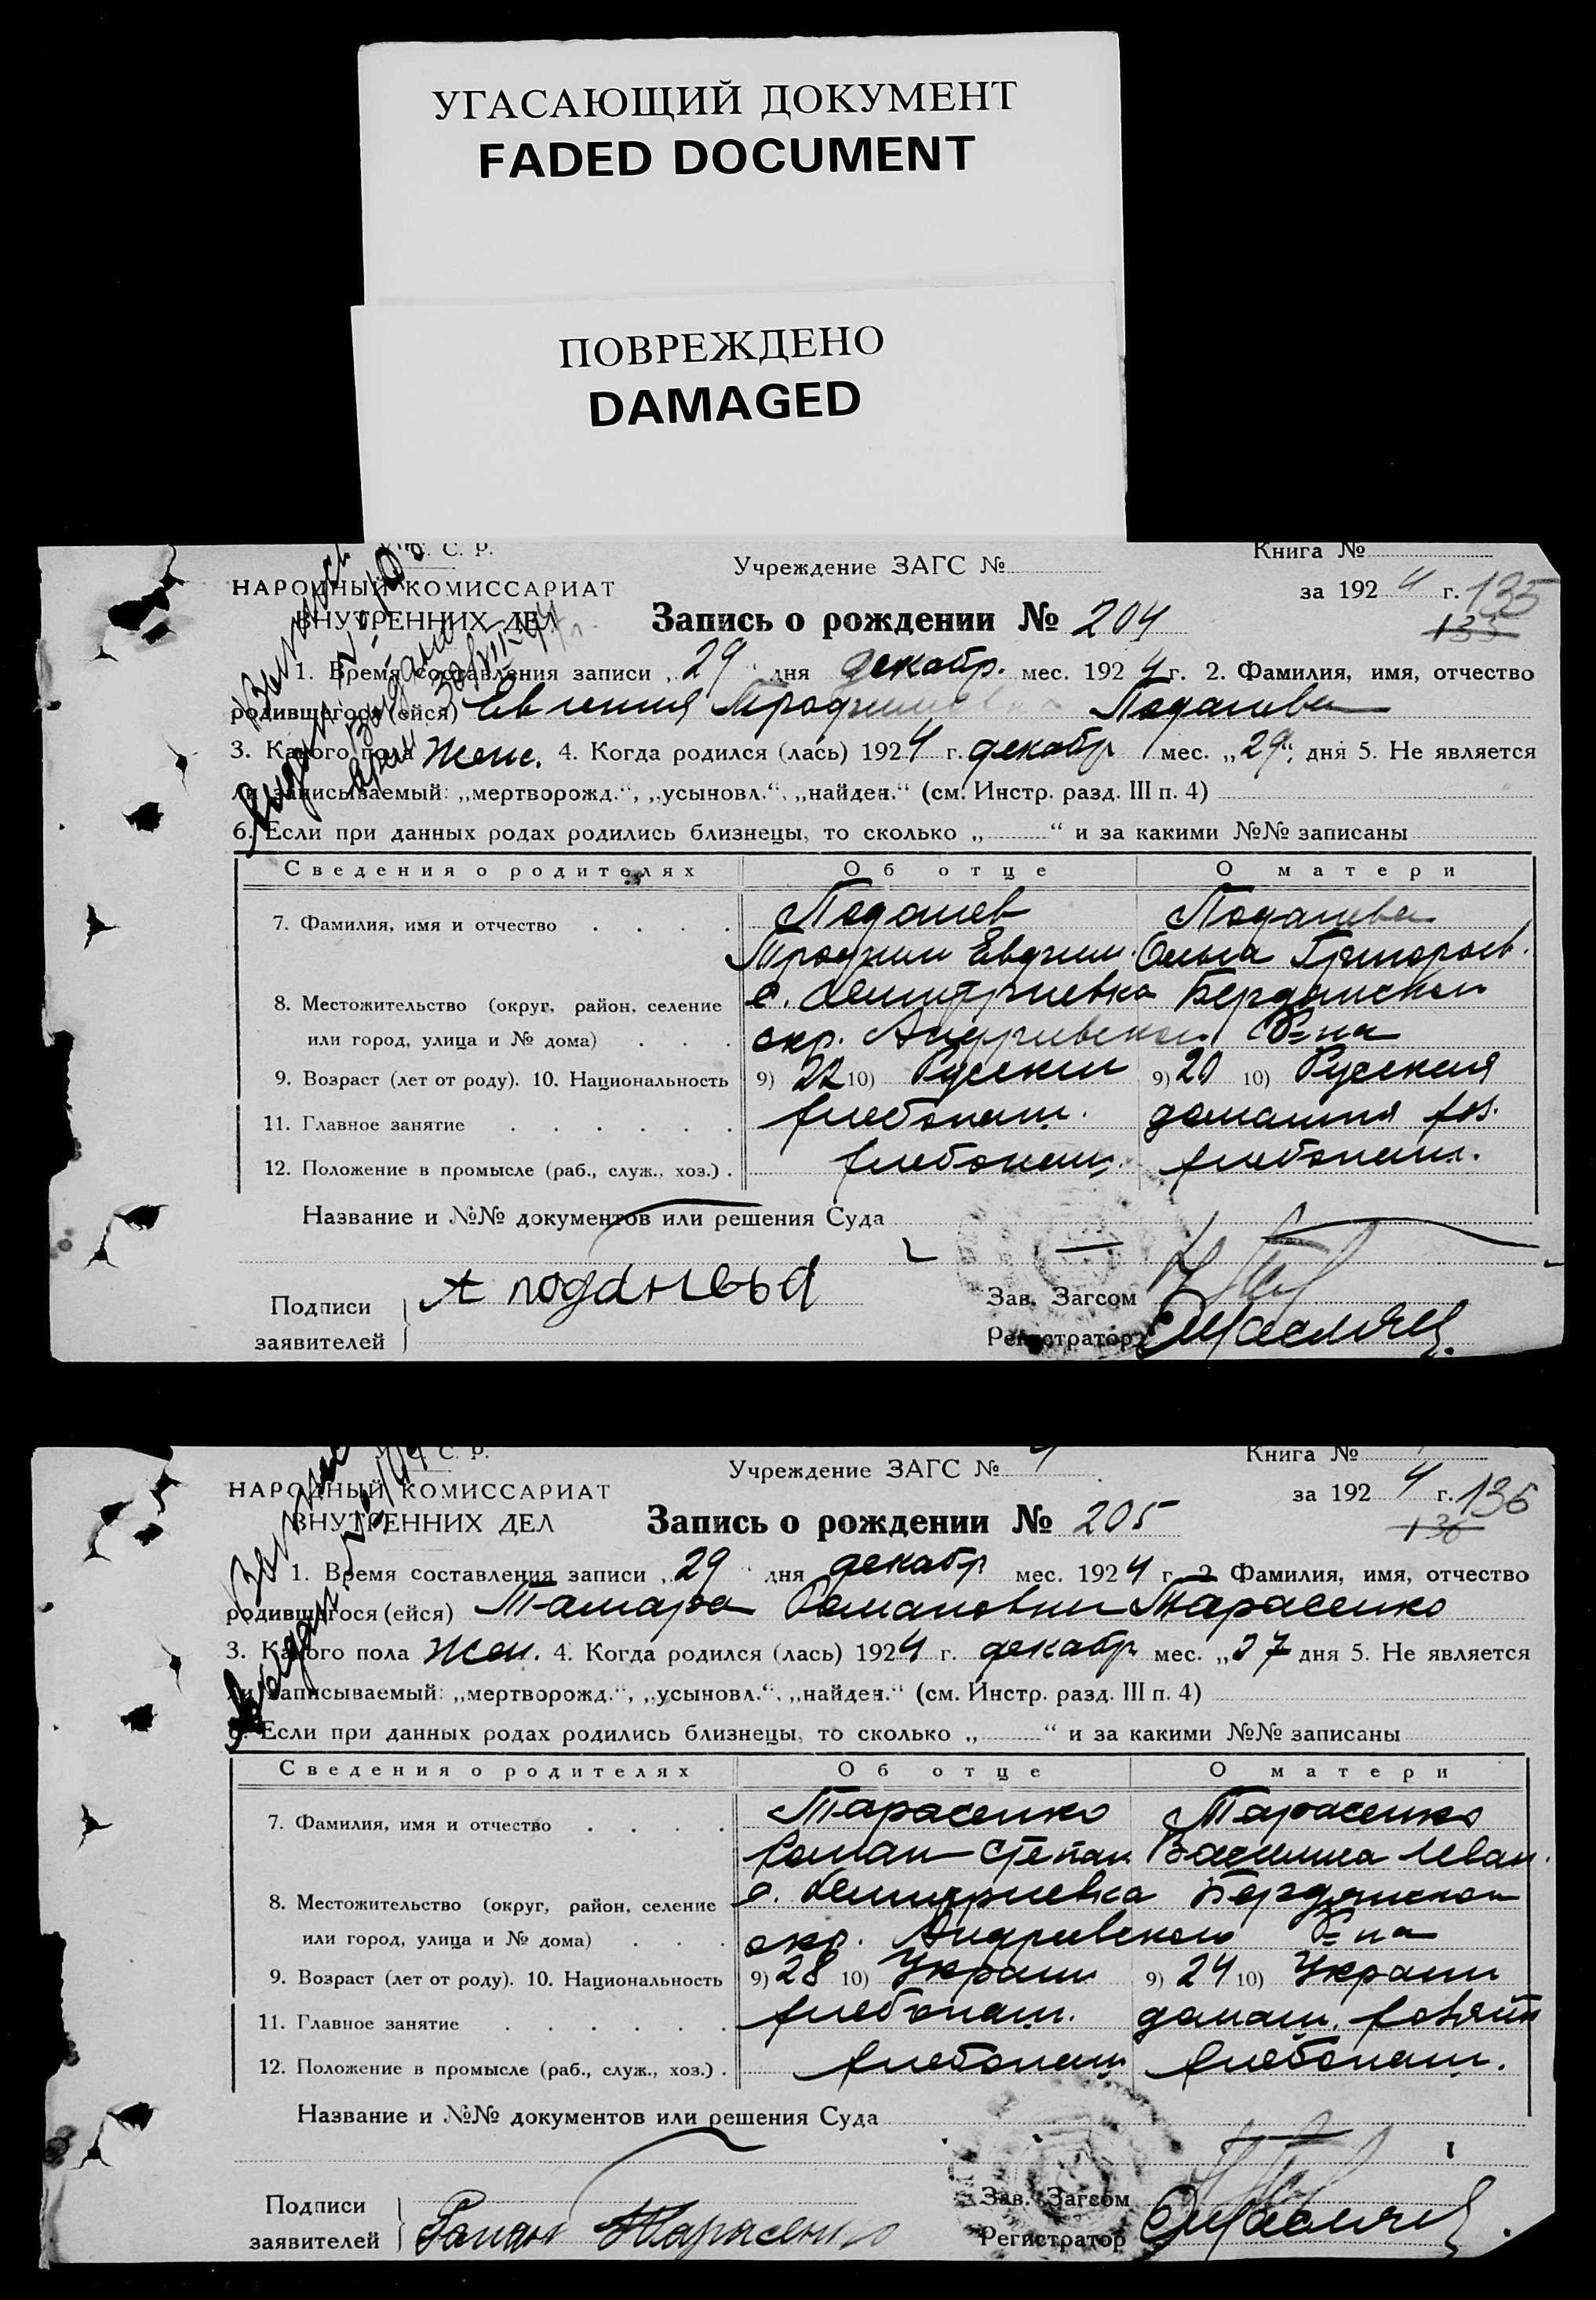 УГАСАЮЩИЙ ДОКУМЕНТ
FADED DOCUMENT
ПОВРЕЖДЕНО
DAMAGED
С. Р.
Учреждение ЗАГС №
Книга №
НАРОДНЫЙ КОМИССАРИАТ
за 192 4 г. 135
ВНУТРЕННИХ ДЕЛ
Запись о рождении № 204
133
1. Время составления записи „29“ дня декабр. мес. 192 4 г. 2. Фамилия, имя, отчество
родившегося (ейся) Евгения Трофимовна
3. Какого пола женс. 4. Когда родился (лась) 192 4 г. декабр мес. „29“ дня 5. Не является
ли записываемый: „мертворожд.“, „усыновл.“, „найден.“ (см. Инстр. разд. III п. 4)
6. Если при данных родах родились близнецы, то сколько „ “ и за какими №№ записаны
Сведения о родителях Об отце О матери
7. Фамилия, имя и отчество
Трофим Евдоким. Ольга Григорьев.
8. Местожительство (округ, район, селение с. Дмитриевка Бердянской
или город, улица и № дома) окр. Андриевского р-на
9. Возраст (лет от роду). 10. Национальность 9) 22 10) Русский 9) 20 10) Русская
11. Главное занятие хлебопаш. домашня хоз.
12. Положение в промысле (раб., служ., хоз.) хлебопаш. хлебопаш.
Название и №№ документов или решения Суда
Подписи
заявителей
Зав. Загсом
Регистратор
С. Р.
Учреждение ЗАГС №
Книга №
НАРОДНЫЙ КОМИССАРИАТ
за 192 4 г. 136
ВНУТРЕННИХ ДЕЛ
Запись о рождении № 205
136
1. Время составления записи „29“ дня декабр мес. 192 4 г. 2. Фамилия, имя, отчество
родившегося (ейся) Тамара Романовна Тарасенко
3. Какого пола жен. 4. Когда родился (лась) 192 4 г. декабр мес. „27 дня 5. Не является
ли записываемый: „мертворожд.“, „усыновл.“, „найден.“ (см. Инстр. разд. III п. 4)
6. Если при данных родах родились близнецы, то сколько „ “ и за какими №№ записаны
Сведения о родителях Об отце О матери
7. Фамилия, имя и отчество Тарасенко Тарасенко
Роман Степан Василиса Иван.
8. Местожительство (округ, район, селение с. Дмитриевка Бердянской
или город, улица и № дома) окр. Андриевского р-на
9. Возраст (лет от роду). 10. Национальность 9) 28 10) Украин 9) 24 10) Украин
11. Главное занятие хлебопаш. домаш. хозяйн
12. Положение в промысле (раб., служ., хоз.) хлебопаш хлебопаш.
Название и №№ документов или решения Суда
Подписи
заявителей Роман Тарасенко
Зав. Загсом
Регистратор